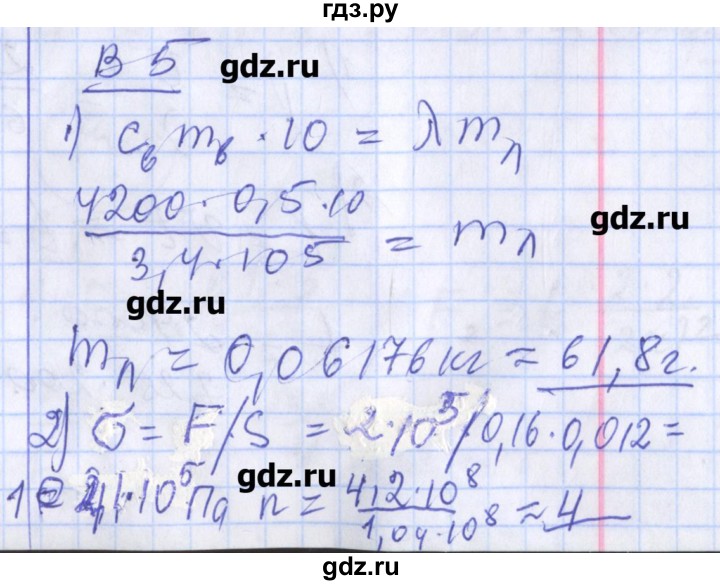 гдз.ру
В 5
gdz.ru
1) cв mв · 10 = λ mл
4200 · 0,5 · 10
gdz.ru
3,4 · 10 5 = mл
gdz.ru
mл = 0,06176 кг = 61,8 г.
2) σ = F/S = 2·10^5/0,16·0,012 =
gdz.ru
10^5 Па n = 4,2·10^8
1,04·10^8 ≈ 4
gdz.ru